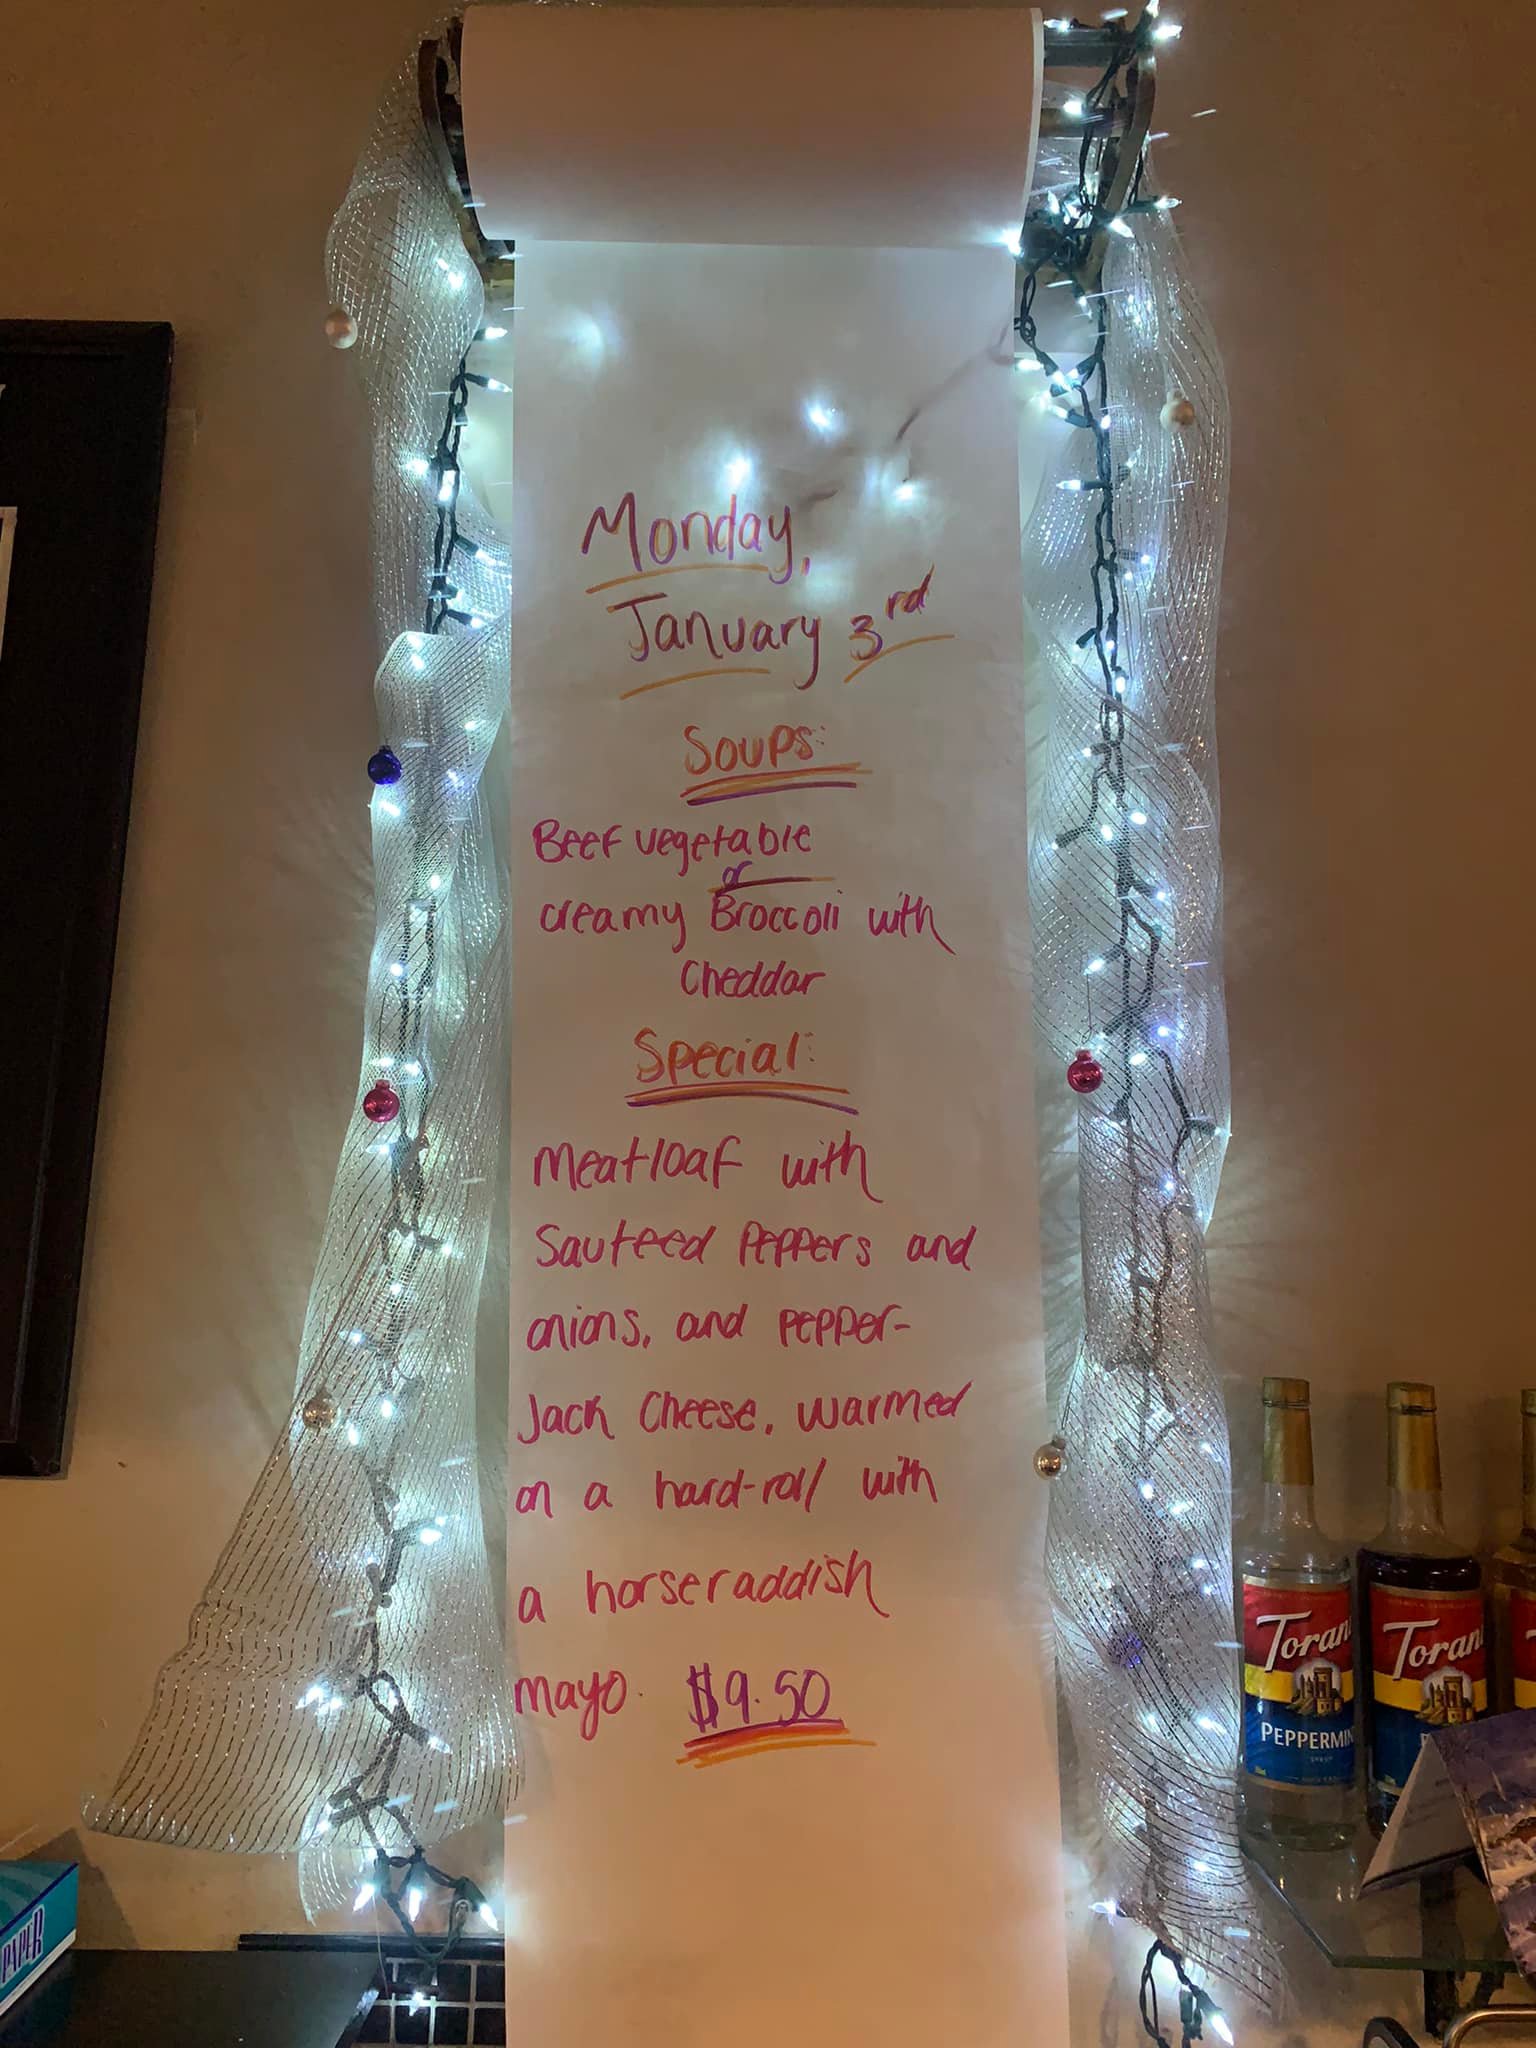 Monday,
January 3rd
Soups:
Beef vegetable
or
creamy Broccoli with
Cheddar
Special:
Meatloaf with
Sauteed Peppers and
onions, and pepper-
Jack Cheese, warmed
on a hard-roll with
a horseraddish
mayo. $9.50
Toran
PEPPERMIN
SYRUP
Toran
PAPER